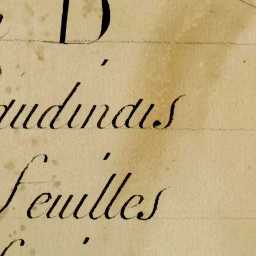 D
audinais
feuilles